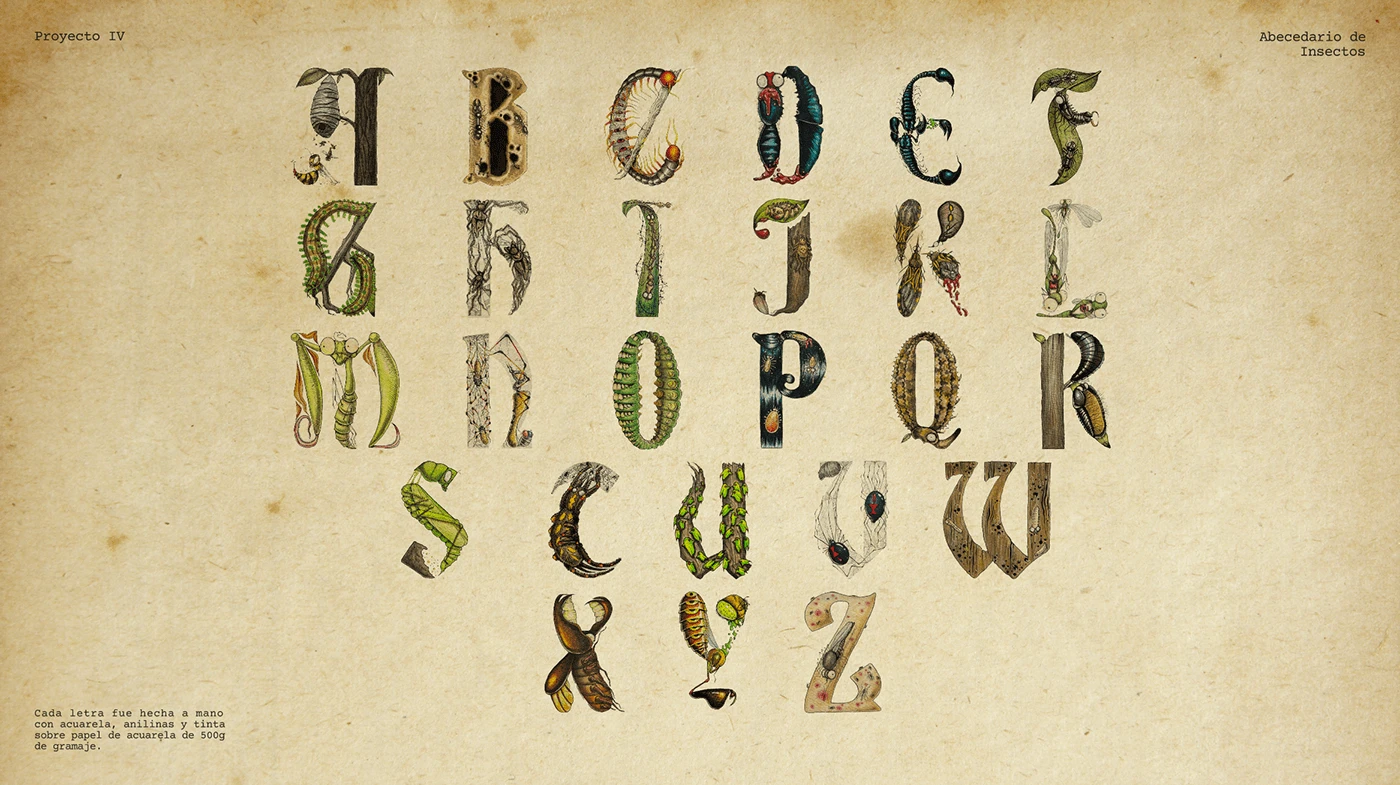 Proyecto IV
Abecedario de
Insectos
A B C D E F
G H I J K L
M N O P Q R
S T U V W
X Y Z
Cada letra fue hecha a mano
con acuarela, anilinas y tinta
sobre papel de acuarela de 500g
de gramaje.